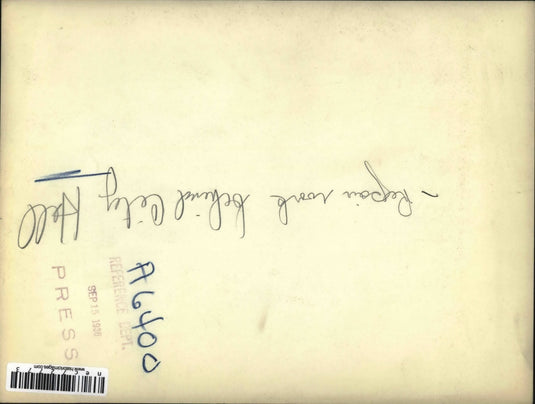 - Repair work behind City Hall
A6400
REFERENCE DEPT.
SEP 15 1936
PRESS
www.historicimages.com